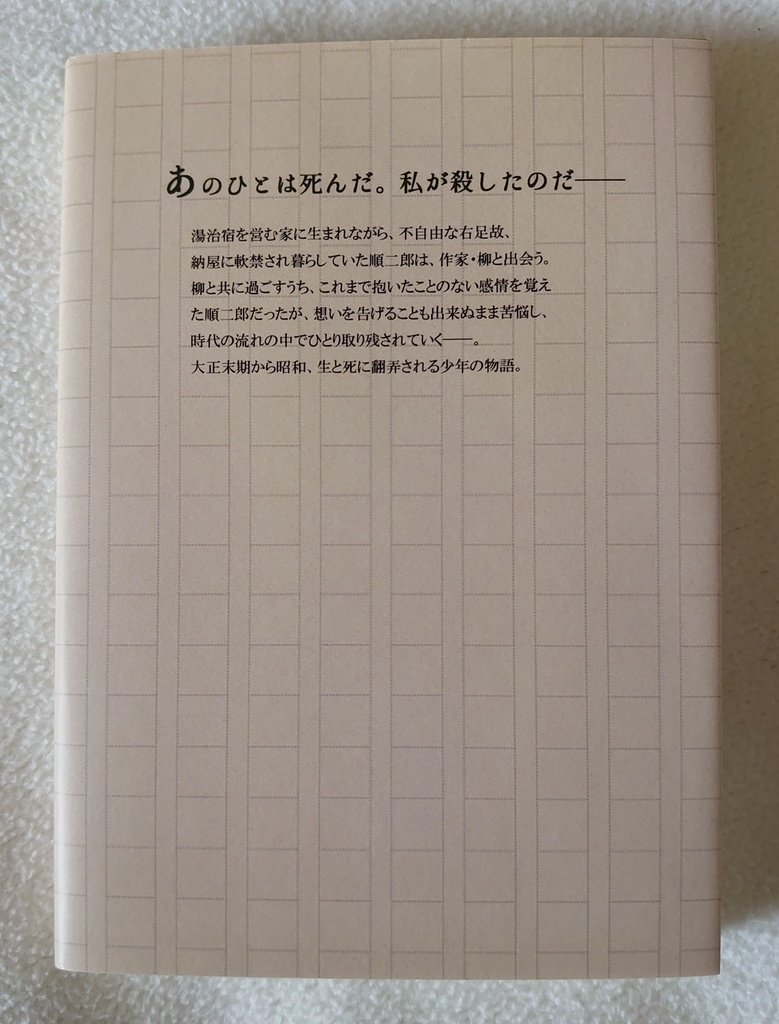 あのひとは死んだ。私が殺したのだ――
湯治宿を営む家に生まれながら、不自由な右足故、
納屋に軟禁され暮らしていた順二郎は、作家・柳と出会う。
柳と共に過ごすうち、これまで抱いたことのない感情を覚え
た順二郎だったが、想いを告げることも出来ぬまま苦悩し、
時代の流れの中でひとり取り残されていく――。
大正末期から昭和、生と死に翻弄される少年の物語。